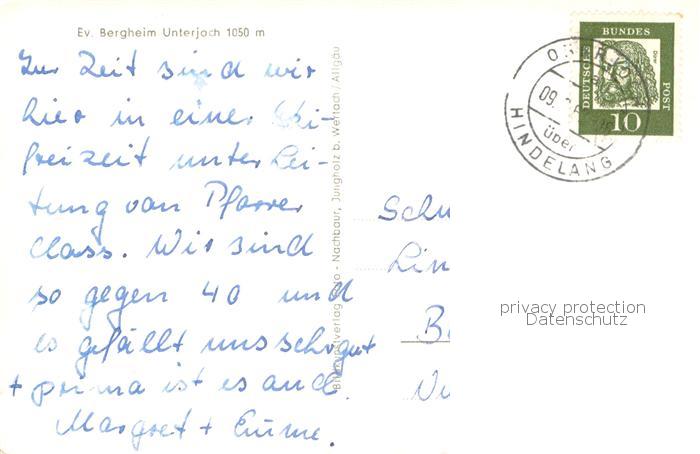 Ev. Bergheim Unterjoch 1050 m
Zur Zeit sind wir
hier in einer Ski-
freizeit unter Lei-
tung von Pfarrer
Class. Wir sind
so gegen 40 und
es gefällt uns sehr gut
+ prima ist es auch.
Margret +
Foto - Nachbaur, Jungholz b. Wertach/Allgäu
Schu
Lin
DEUTSCHE
BUNDES
POST
10
09.
über
HINDELANG
privacy protection
Datenschutz